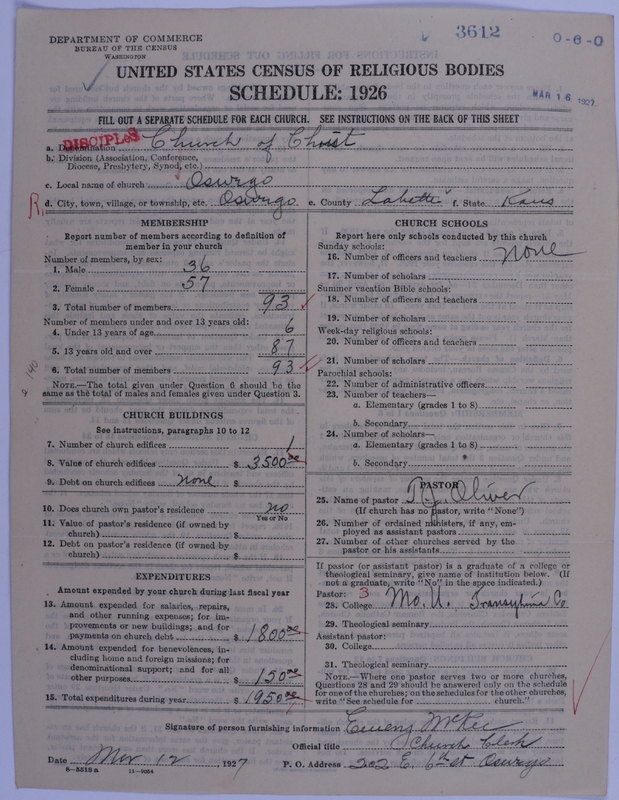 3612
0-6-0
DEPARTMENT OF COMMERCE
BUREAU OF THE CENSUS
WASHINGTON
UNITED STATES CENSUS OF RELIGIOUS BODIES
SCHEDULE: 1926
MAR 16 1927
FILL OUT A SEPARATE SCHEDULE FOR EACH CHURCH. SEE INSTRUCTIONS ON THE BACK OF THIS SHEET
DISCIPLES
a. Denomination Church of Christ
b. Division (Association, Conference,
Diocese, Presbytery, Synod, etc.)
c. Local name of church Oswego
R. d. City, town, village, or township, etc. Oswego e. County Labette f. State Kans
MEMBERSHIP
Report number of members according to definition of
member in your church
Number of members, by sex:
1. Male 36
2. Female 57
3. Total number of members 93
Number of members under and over 13 years old:
4. Under 13 years of age 6
5. 13 years old and over 87
6. Total number of members 93
140
NOTE.—The total given under Question 6 should be the
same as the total of males and females given under Question 3.
CHURCH BUILDINGS
See instructions, paragraphs 10 to 12
7. Number of church edifices 1
8. Value of church edifices $ 3500 00
9. Debt on church edifices none $
10. Does church own pastor's residence no
Yes or No
11. Value of pastor's residence (if owned by
church) $
12. Debt on pastor's residence (if owned by
church) $
EXPENDITURES
Amount expended by your church during last fiscal year
13. Amount expended for salaries, repairs,
and other running expenses; for im-
provements or new buildings; and for
payments on church debt $ 1800 00
14. Amount expended for benevolences, in-
cluding home and foreign missions; for
denominational support; and for all
other purposes $ 150 00
15. Total expenditures during year $ 1950 00
CHURCH SCHOOLS
Report here only schools conducted by this church
Sunday schools:
16. Number of officers and teachers none
17. Number of scholars
Summer vacation Bible schools:
18. Number of officers and teachers
19. Number of scholars
Week-day religious schools:
20. Number of officers and teachers
21. Number of scholars
Parochial schools:
22. Number of administrative officers
23. Number of teachers—
a. Elementary (grades 1 to 8)
b. Secondary
24. Number of scholars—
a. Elementary (grades 1 to 8)
b. Secondary
PASTOR
25. Name of pastor T J Oliver
(If church has no pastor, write "None")
26. Number of ordained ministers, if any, em-
ployed as assistant pastors
27. Number of other churches served by the
pastor or his assistants
If pastor (or assistant pastor) is a graduate of a college or
theological seminary, give name of institution below. (If
not a graduate, write "No" in the space indicated.)
Pastor: 3
28. College Mo. U. Transylvina Co
29. Theological seminary
Assistant pastor:
30. College
31. Theological seminary
NOTE.—Where one pastor serves two or more churches,
Questions 28 and 29 should be answered only on the schedule
for one of the churches; on the schedules for the other churches,
write "See schedule for church."
Signature of person furnishing information McKee
Official title Church Clerk
Date Mar 12, 1927 P. O. Address 202 E. 6th st Oswego
8—5518a 11—9054